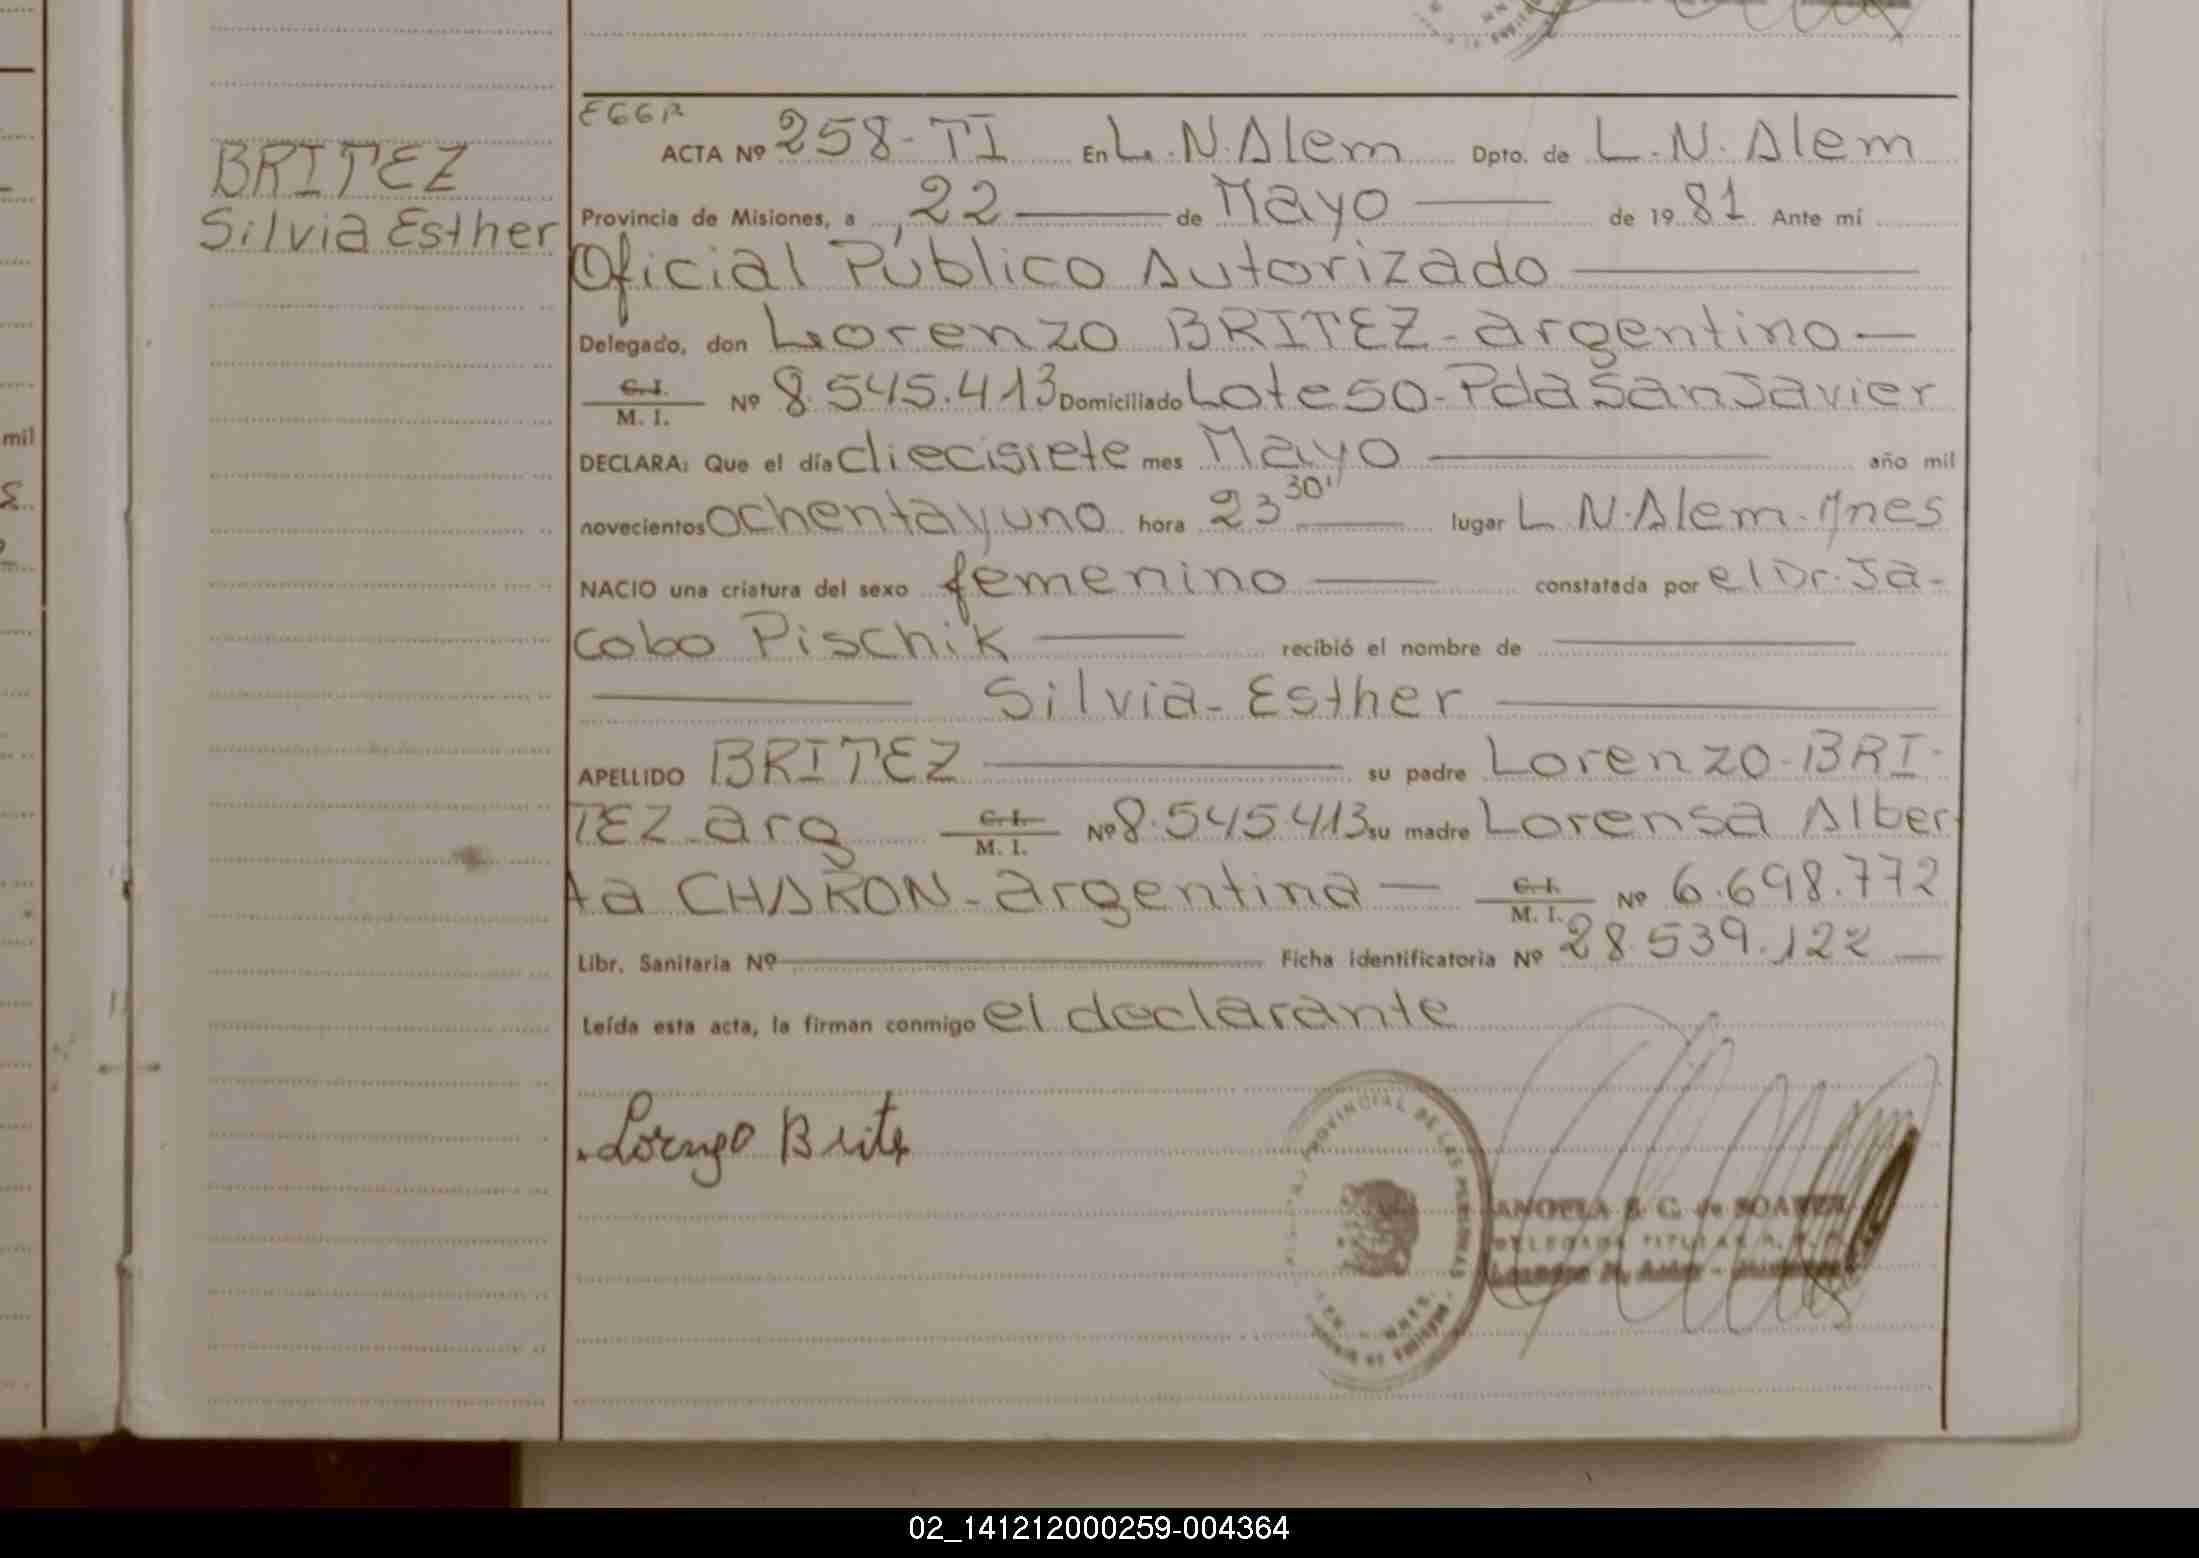 BRITEZ
Silvia Esther
EGGR
ACTA Nº 258-TI En L.N.Alem Dpto. de L.N. Alem
Provincia de Misiones, a 22 de Mayo de 1981 Ante mí
Oficial Público Autorizado
Delegado, don Lorenzo BRITEZ - argentino
C.I. / M. I. Nº 8.545.413 Domiciliado Lote 50 - Pda San Javier
DECLARA: Que el día diecisiete mes Mayo año mil
novecientos ochentayuno hora 23 30' lugar L N.Alem. Mnes
NACIO una criatura del sexo femenino constatada por el Dr. Ja-
cobo Pischik recibió el nombre de
Silvia - Esther
APELLIDO BRITEZ su padre Lorenzo - BRI-
TEZ - arg C.I. / M. I. Nº 8.545413 su madre Lorensa Alber
ta CHARON - argentina C.I. / M. I. Nº 6.698.772
Libr. Sanitaria Nº Ficha identificatoria Nº 28.539.122
Leída esta acta, la firman conmigo el declarante
Lorenzo Britez
PROVINCIAL DE LAS PERSONAS
ANGELA S. C. de SOAREZ
DELEGADA TITULAR
mil
02_141212000259-004364